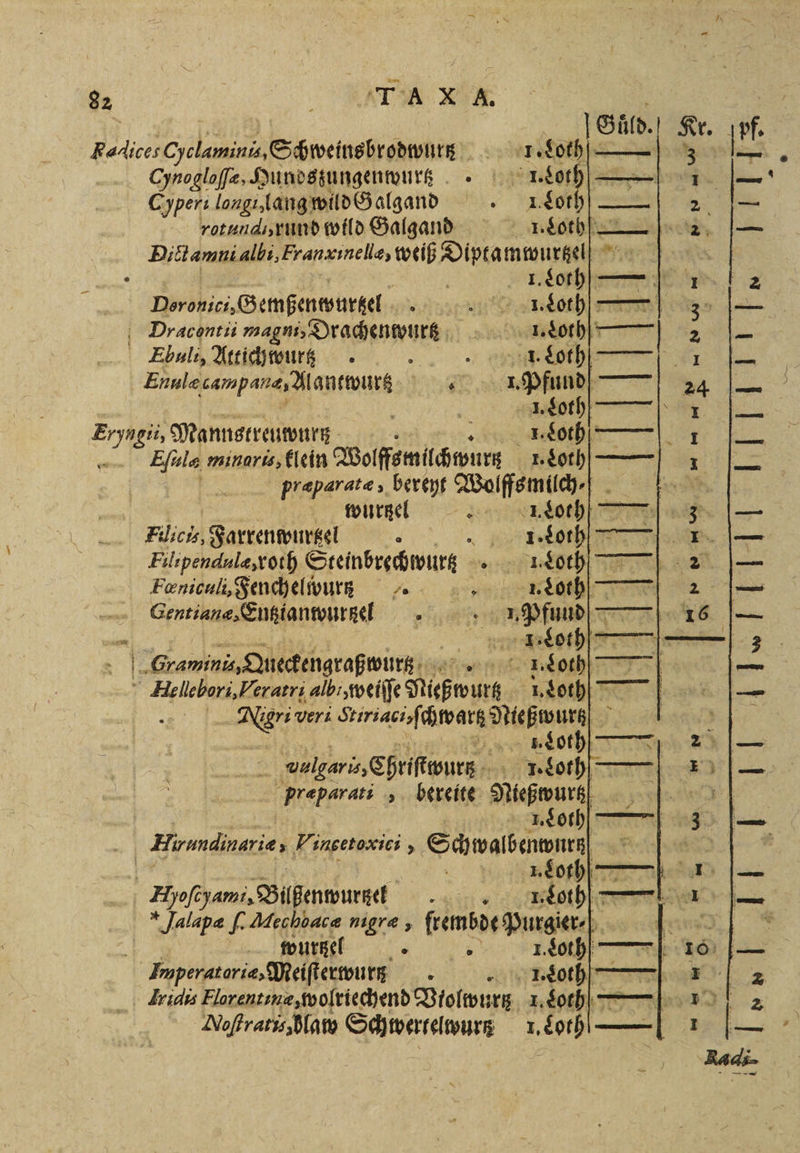 82 TAXA.
Gůld. Kr. pf.
Radices Cyclaminis, Schweinsbrodwurtz 1. Loth —— 3 —
Cynoglossæ, Hundszungenwurtz . 1. Loth —— 1 —
Cyperi longi, lang wild Galgand . 1. Loth —— 2 —
rotundi, rund wild Galgand 1. Loth —— 2 —
Dictamni albi, Franxinellæ, weiß Diptamwurtzel
1. Loth —— 1 2
Doronici, Gemßenwurtzel . . 1. Loth —— 3 —
Dracontii magni, Drachenwurtz 1. Loth —— 2 —
Ebuli, Attichwurtz . . . 1. Loth —— 1 —
Enulæ campanæ, Alantwurtz . 1. Pfund —— 24 —
1. Loth —— 1 —
Eryngii, Mannstreuwurtz . . 1. Loth —— 1 —
Esulæ minoris, klein Wolffsmilchwurtz 1. Loth —— 1 —
præparatæ, bereyt Wolffsmilch-
wurtzel . 1. Loth —— 3 —
Filicis, Farrenwurtzel . . 1. Loth —— 1 —
Filipendulæ, roth Steinbrechwurtz . 1. Loth —— 2 —
Fœniculi, Fenchelwurtz . . 1. Loth —— 2 —
Gentianæ, Entzianwurtzel . . 1. Pfund —— 16 —
1. Loth —— —— 3
Graminis, Queckengraßwurtz . 1. Loth —— —
Hellebori, Veratri albi, weisse Nießwurtz 1. Loth —— —
Nigri veri Stiriaci, schwartz Nießwurtz
1. Loth —— 2 —
vulgaris, Christwurtz 1. Loth —— 1 —
præparati, bereite Nießwurtz
1. Loth —— 3 —
Hirundinariæ, Vincetoxici, Schwalbenwurtz
1. Loth —— 1 —
Hyoscyami, Bilßenwurtzel . . 1. Loth —— 1 —
* Jalapæ s. Mechoacæ nigræ, frembde Purgier-
wurtzel . . 1. Loth —— 10 —
Imperatoriæ, Meisterwurtz . . 1. Loth —— 1 2
Iridis Florentinæ, wolriechend Violwurtz 1. Loth —— 1 2
Nostratis, blaw Schwertelwurtz 1. Loth —— 1 —
Radi-